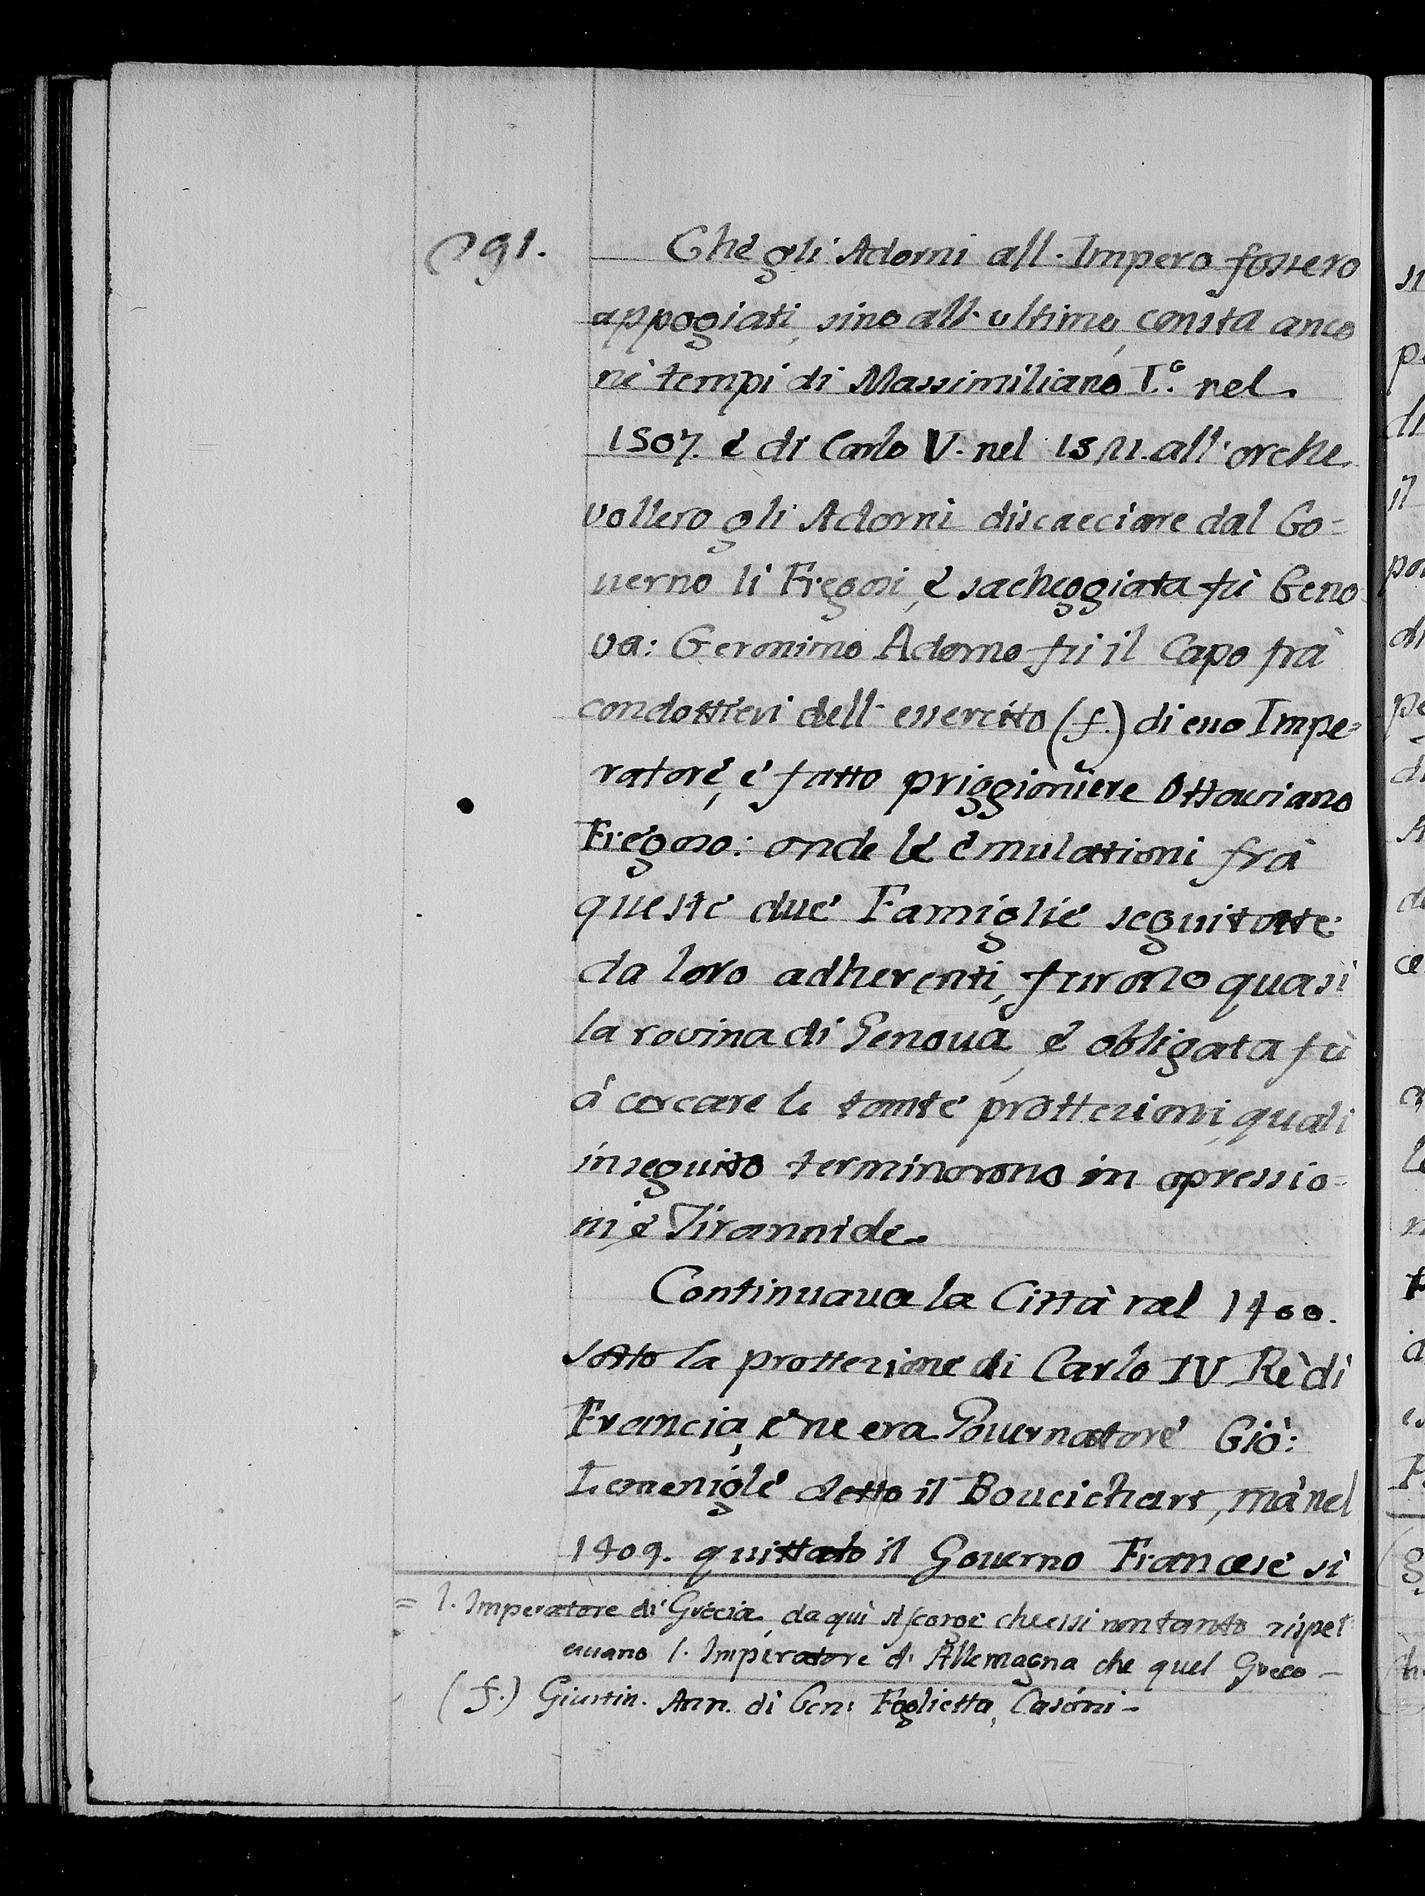 291.
Chè gli Adorni all'Impero fossero
appogiati, sino all'ultimo, consta anco
nè tempi di Massimiliano I.º nel
1507. è di Carlo V. nel 1521. all'orche
vollero gli Adorni discacciare dal Go=
uerno li Fregosi, è sacheggiata fù Geno
va: Geronimo Adorno fù il Capo frà
condottieri dell'essercitto (f.) di esso Impe=
ratorè, è fatto priggioniere Ottauiano
Fregoso: onde lè èmulattioni frà
questè duè Famigliè seguitatte
da loro adherenti, furono quasi
la rovina di Genoua, è obligata fù
à cercare le tantè prottezioni, quali
inseguito terminorono in opressio=
ni, è Tirannide.
Continuaua la Città nel 1400.
sotto la prottezionè di Carlo IV Rè di
Francia, è ne era Gouernatorè Giò:
Lemeniglè detto il Boucichart, mà nel
1409. quittato il Gouerno Francesè si
= l'Imperatore di Grècia, da quì si scorgè che essi non tanto rispet
euano l'Imperatore di Allemagna che quel Greco -
(f.) Giustin. Ann. di Gen: Foglietta, Casóni -